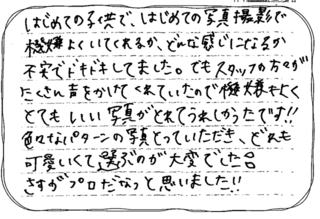 はじめての子供で、はじめての写真撮影で
機嫌よくいてくれるか、どんな感じになるか
不安でドキドキしてました。でもスタッフの方々が
たくさん声をかけてくれていたので機嫌もよく
とてもいい写真がとれてうれしかったです!!
色々なパターンの写真とっていただき、どれも
可愛いくて選ぶのが大変でした。
さすがプロだなっと思いました!!